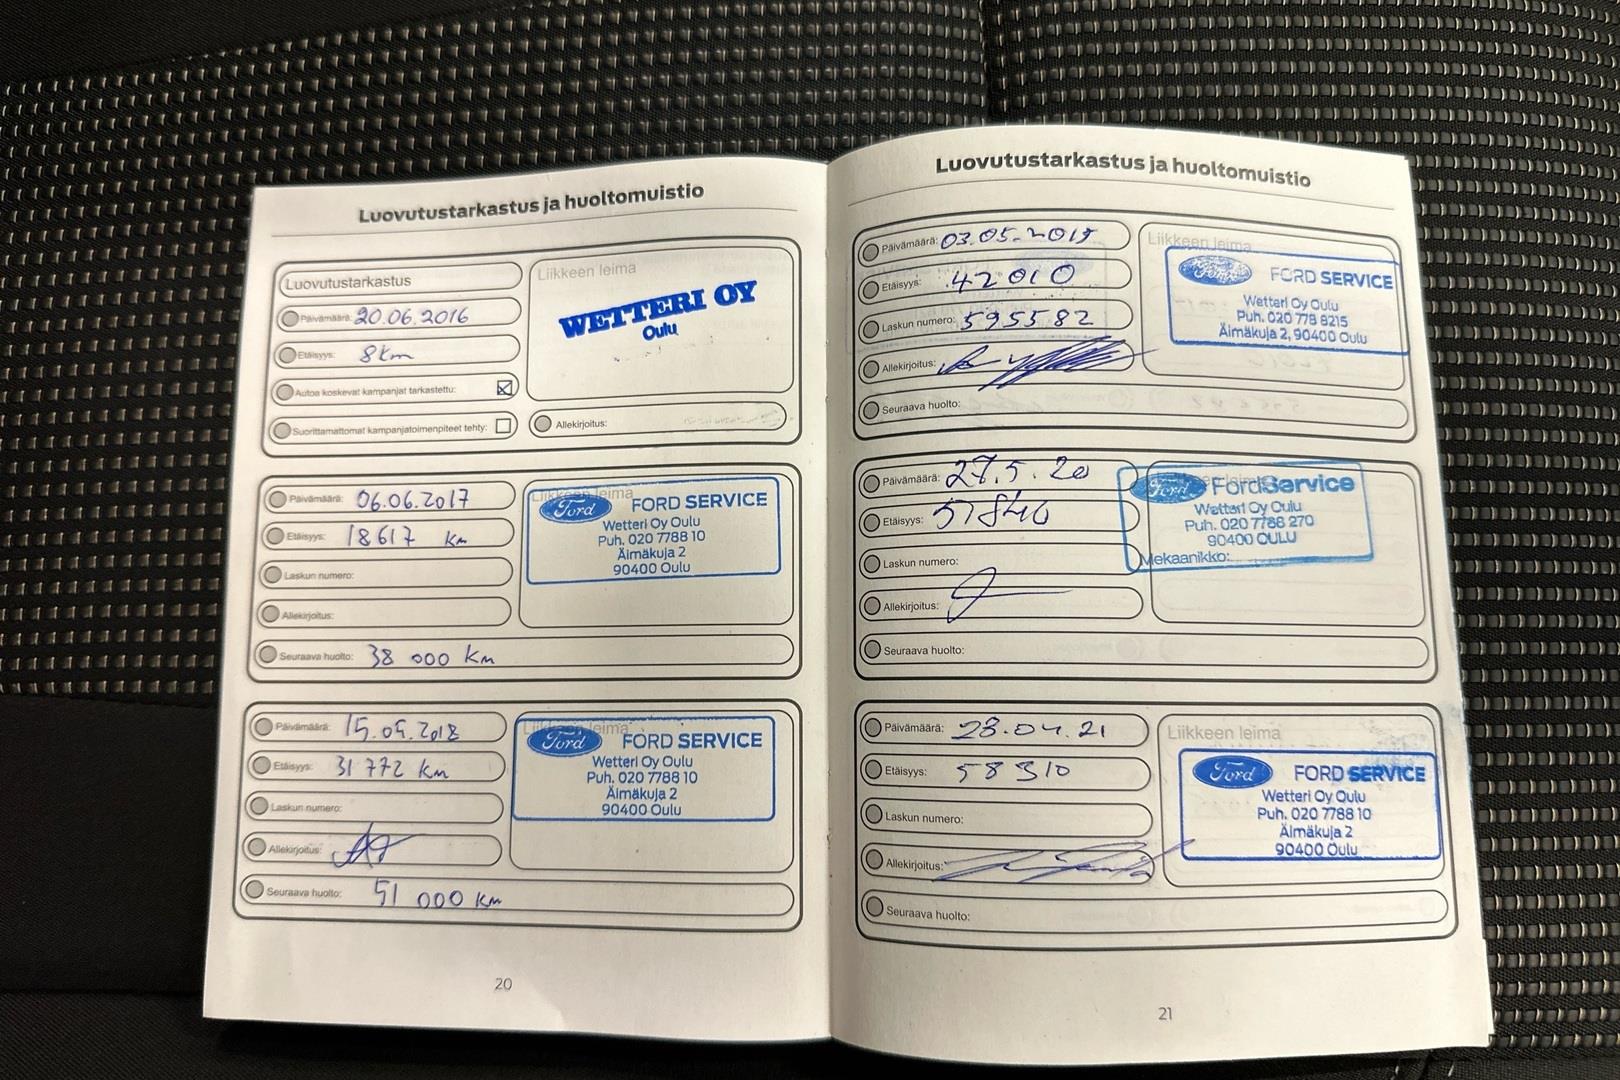 Luovutustarkastus ja huoltomuistio
Luovutustarkastus
Päivämäärä: 20.06.2016
Etäisyys: 8km
Autoa koskevat kampanjat tarkastettu:
Suorittamattomat kampanjatoimenpiteet tehty:
Liikkeen leima
WETTERI OY
Oulu
Allekirjoitus:
Päivämäärä: 06.06.2017
Etäisyys: 18617 km
Laskun numero:
Allekirjoitus:
Seuraava huolto: 38 000 km
Liikkeen leima
Ford FORD SERVICE
Wetteri Oy Oulu
Puh. 020 7788 10
Äimäkuja 2
90400 Oulu
Päivämäärä: 15.05.2018
Etäisyys: 31 772 km
Laskun numero:
Allekirjoitus:
Seuraava huolto: 51 000 km
Liikkeen leima
Ford FORD SERVICE
Wetteri Oy Oulu
Puh. 020 7788 10
Äimäkuja 2
90400 Oulu
20
Luovutustarkastus ja huoltomuistio
Päivämäärä: 03.05.2019
Etäisyys: 42010
Laskun numero: 595582
Allekirjoitus:
Seuraava huolto:
Liikkeen leima
Ford FORD SERVICE
Wetteri Oy Oulu
Puh. 020 778 8215
Äimäkuja 2, 90400 Oulu
Päivämäärä: 27.5.20
Etäisyys: 51840
Laskun numero:
Allekirjoitus:
Seuraava huolto:
Ford FordService
Wetteri Oy Oulu
Puh. 020 7788 270
90400 OULU
Mekaanikko:
Päivämäärä: 28.04.21
Etäisyys: 58310
Laskun numero:
Allekirjoitus:
Seuraava huolto:
Liikkeen leima
Ford FORD SERVICE
Wetteri Oy Oulu
Puh. 020 7788 10
Äimäkuja 2
90400 Oulu
21